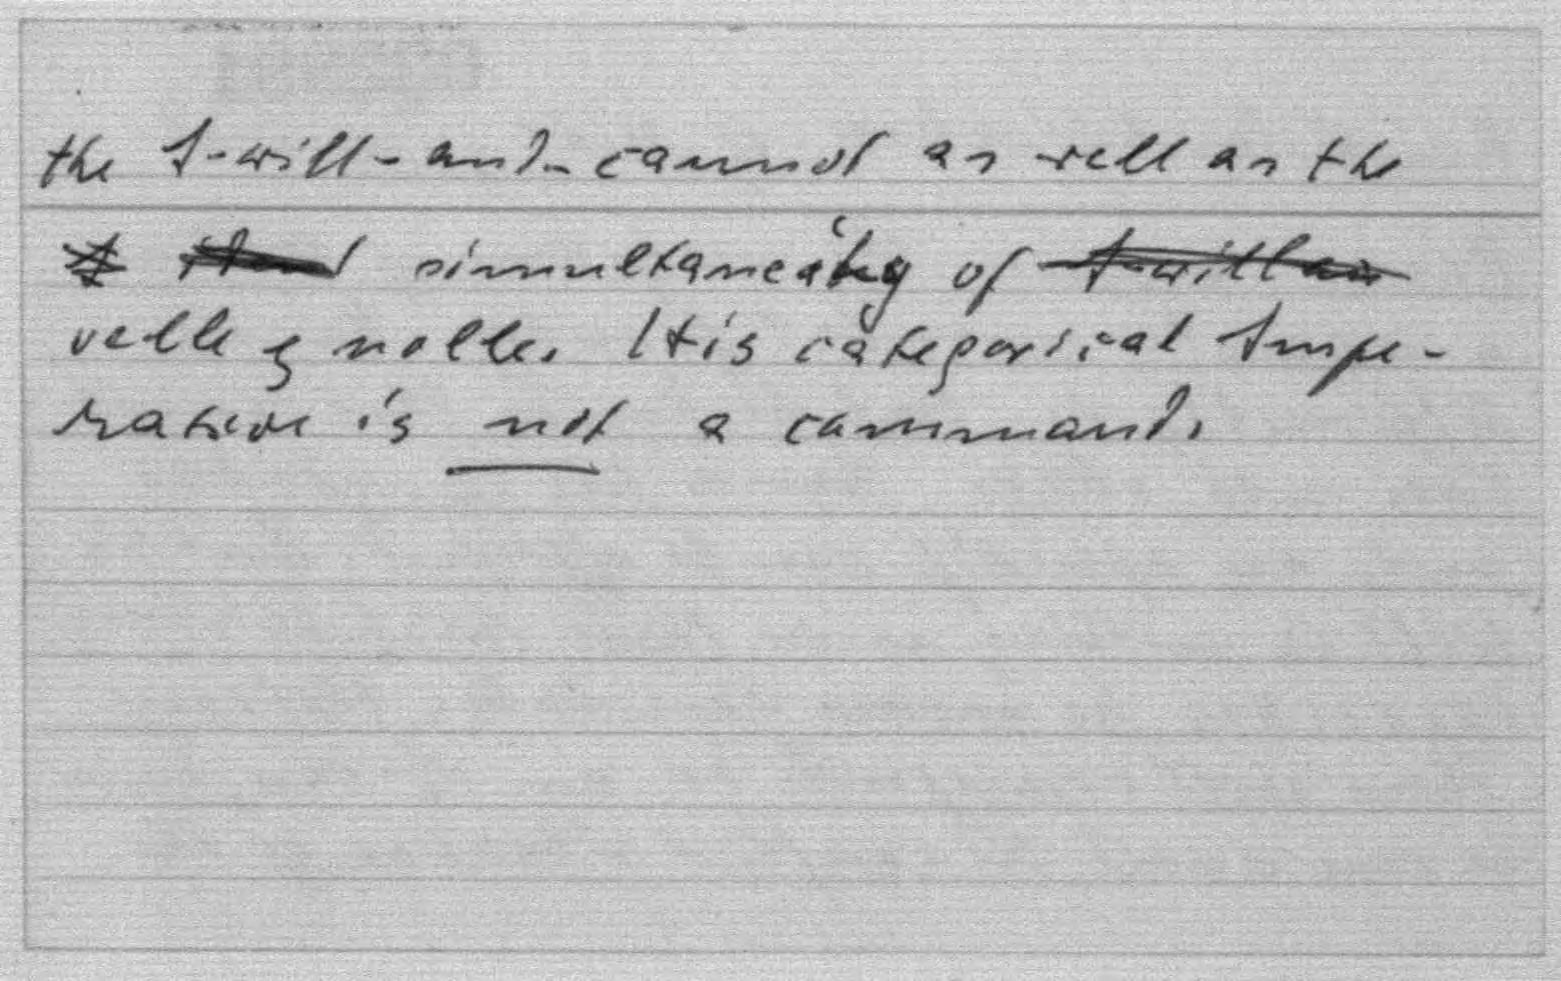 the I-will-and-cannot as well as the
simultaneity of I-will
velle & nolle. His categorical Impe-
rative is not a command.